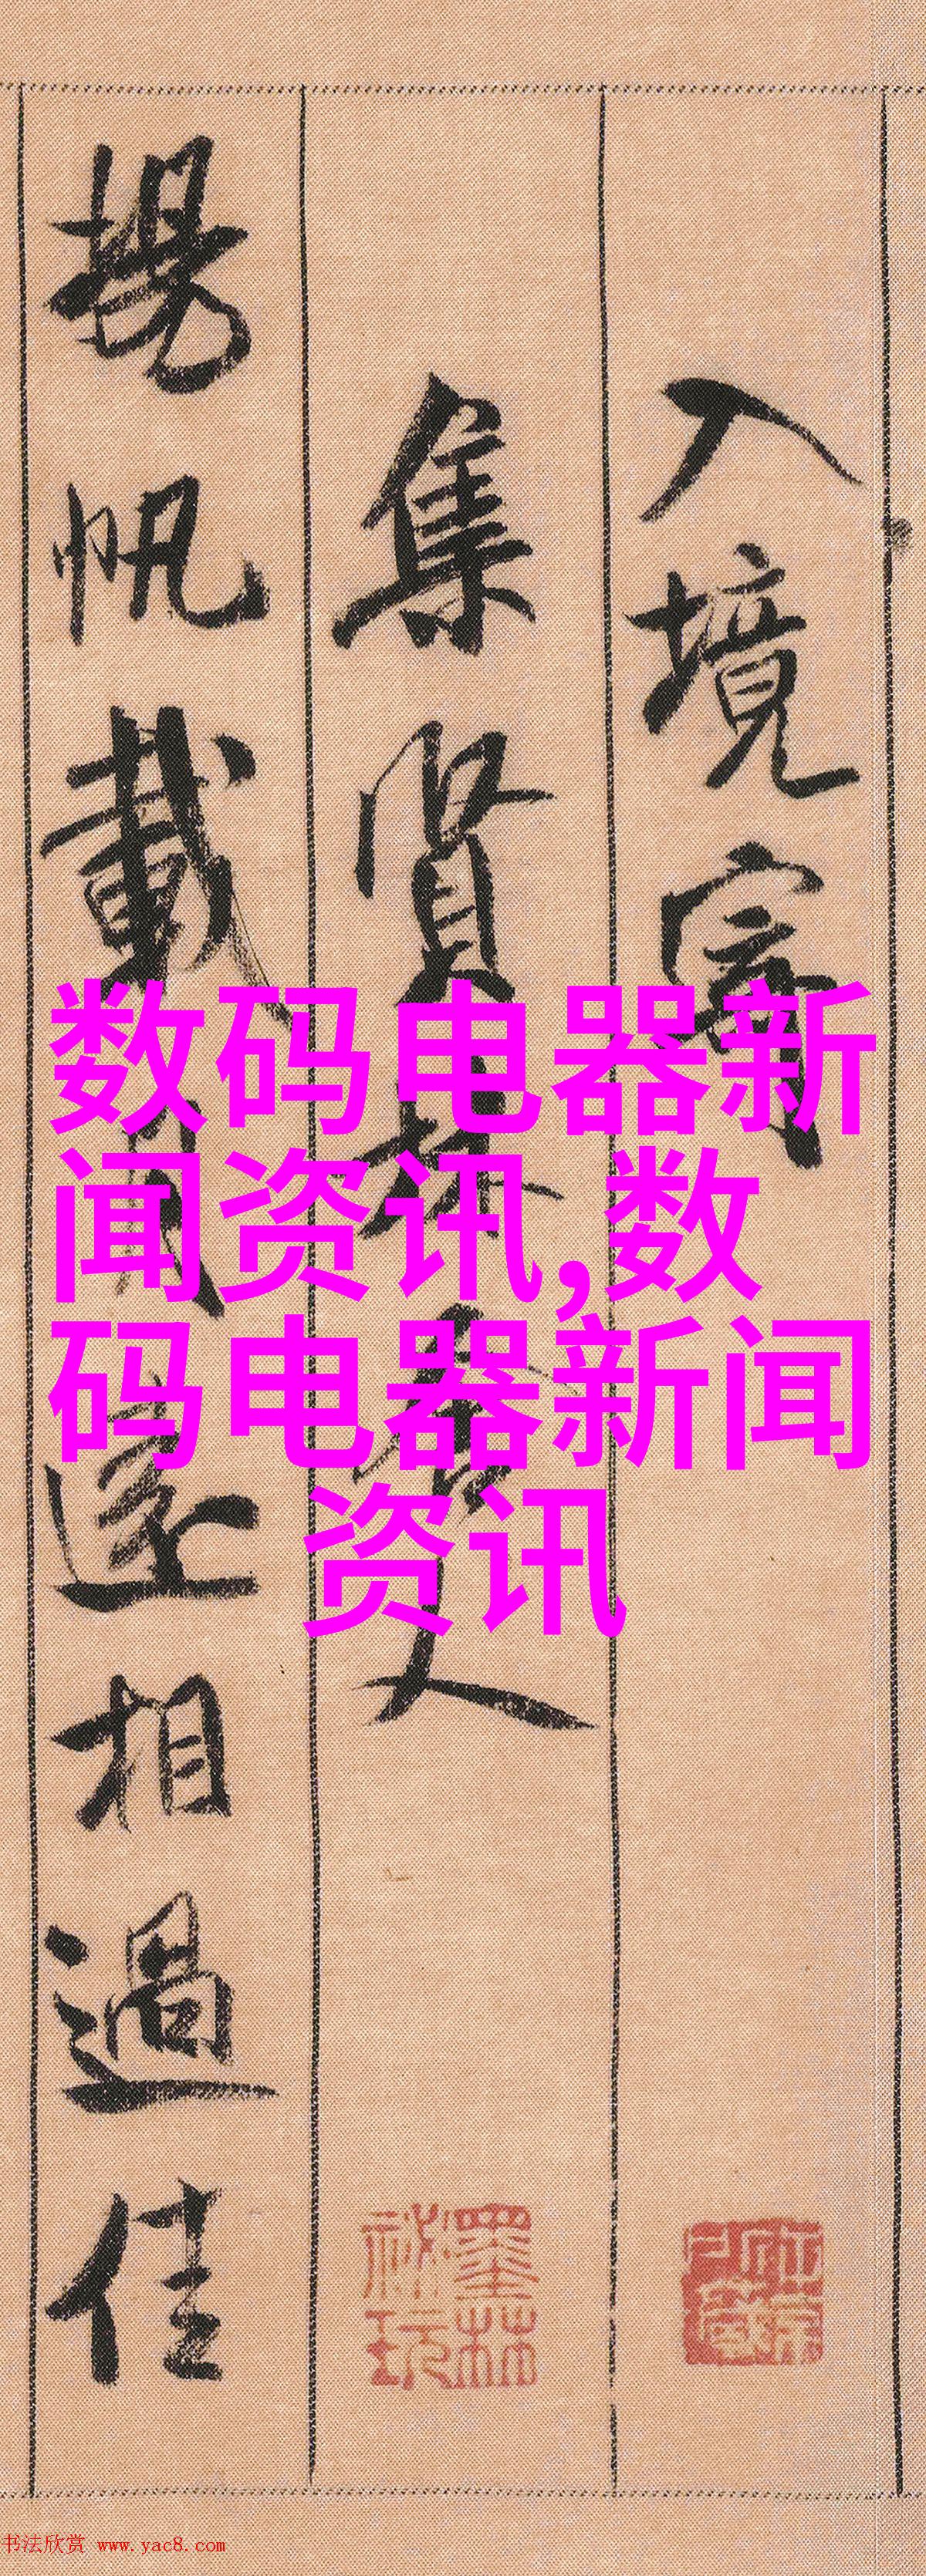 入境寄
集賢林舍人
揚帆載月遠相過佳
数码电器新
闻资讯,数
码电器新闻
资讯
墨林
祕玩
书法欣赏 www.yac8.com